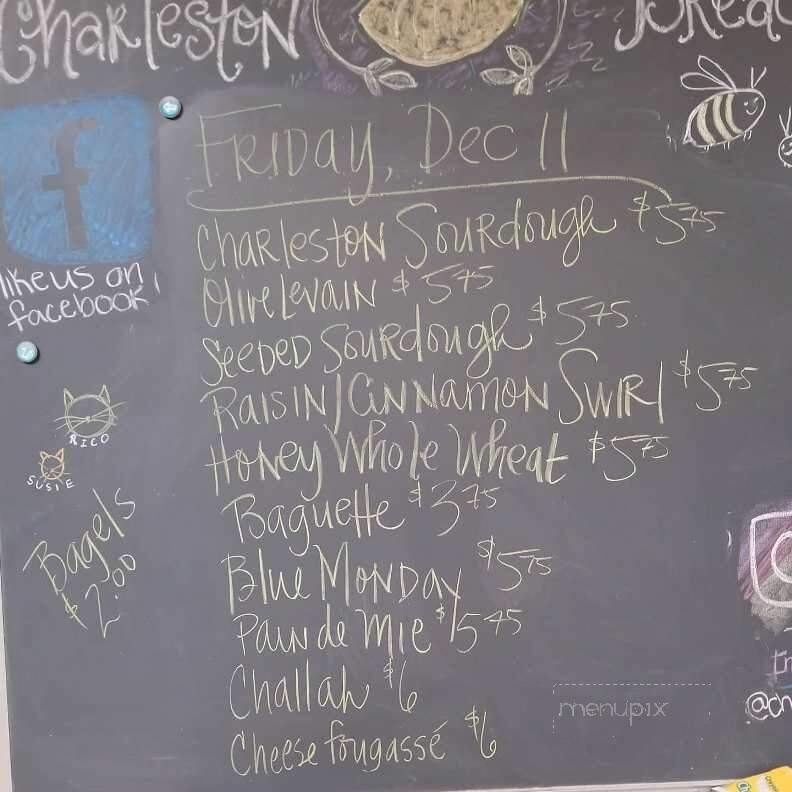 Charleston
Friday, Dec 11
like us on
facebook!
Charleston Sourdough $5.75
Olive Levain $5.45
Seeded Sourdough $5.75
Raisin/Cinnamon Swirl $5.75
RICO
SUSIE
Honey Whole Wheat $5.75
Baguette $3.75
Bagels
$2.00
Blue Monday $5.75
Pain de Mie $5.45
Challah $6
Cheese fougassé $6
menupix